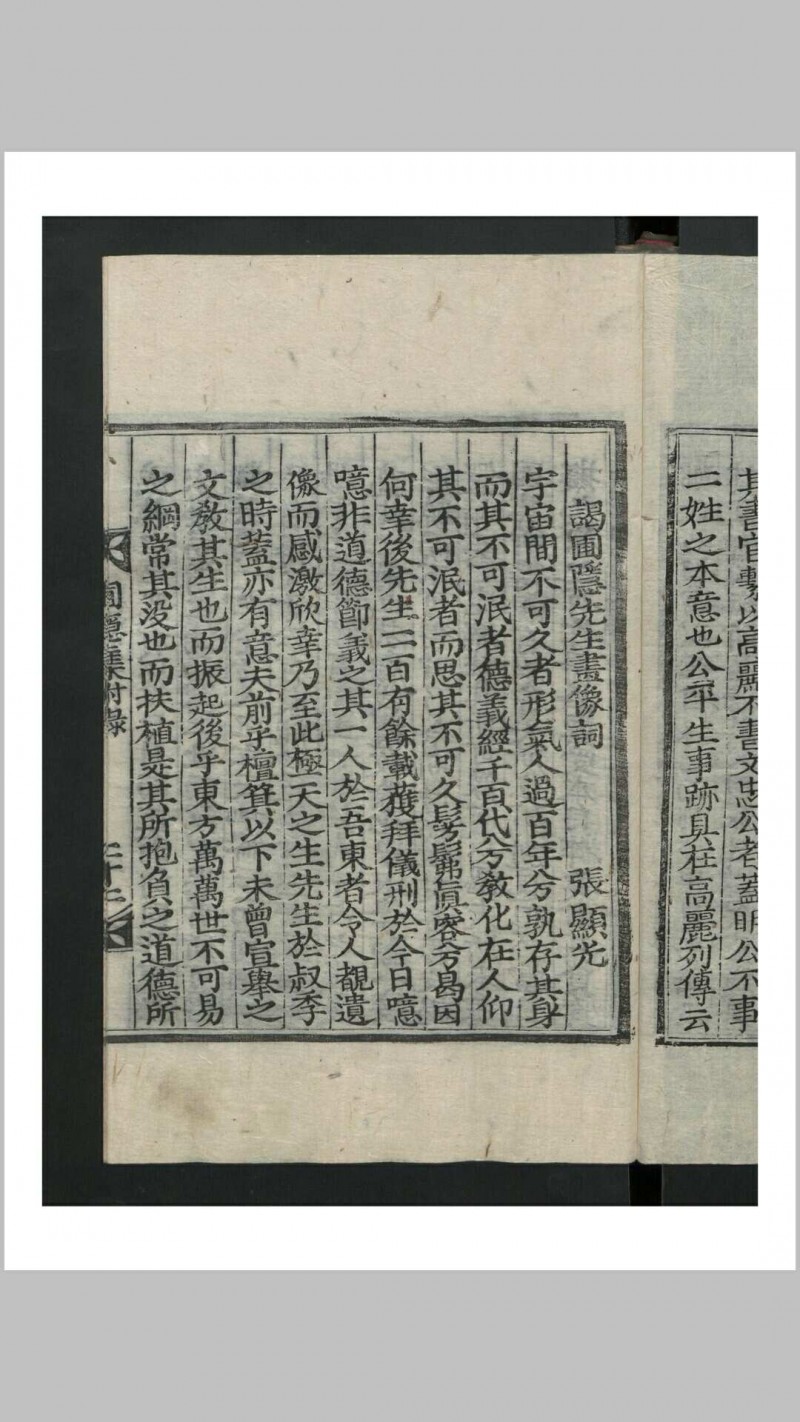 其書官繫以高麗不書文忠公者蓋明公不事
二姓之本意也公平生事跡具在高麗列傳云
謁圃隱先生畫像詞 張顯光
宇宙間不可久者形氣人過百年兮孰存其身
而其不可泯者德義經千百代兮敎化在人仰
其不可泯者而思其不可久髣髴眞容兮曷因
何幸後先生二百有餘載獲拜儀刑於今日噫
噫非道德節義之其一人於吾東者令人覩遺
像而感激欣幸乃至此極天之生先生於叔季
之時蓋亦有意夫前乎檀箕以下未曾宣擧之
文敎其生也而振起後乎東方萬萬世不可易
之綱常其没也而扶植是其所抱負之道德所
圃隱集附錄